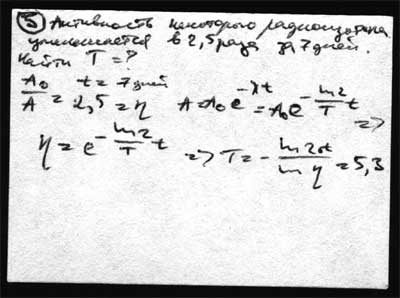 ⑤ Активность некоторого радиоизотопа
уменьшается в 2,5 раза за 7 дней.
Найти T = ?
A₀/A = 2,5 = η t = 7 дней A = A₀e^(-λt) = A₀e^(-(ln2/T)t) =>
η = e^(-(ln2/T)t) => T = - ln2·t / ln η = 5,3